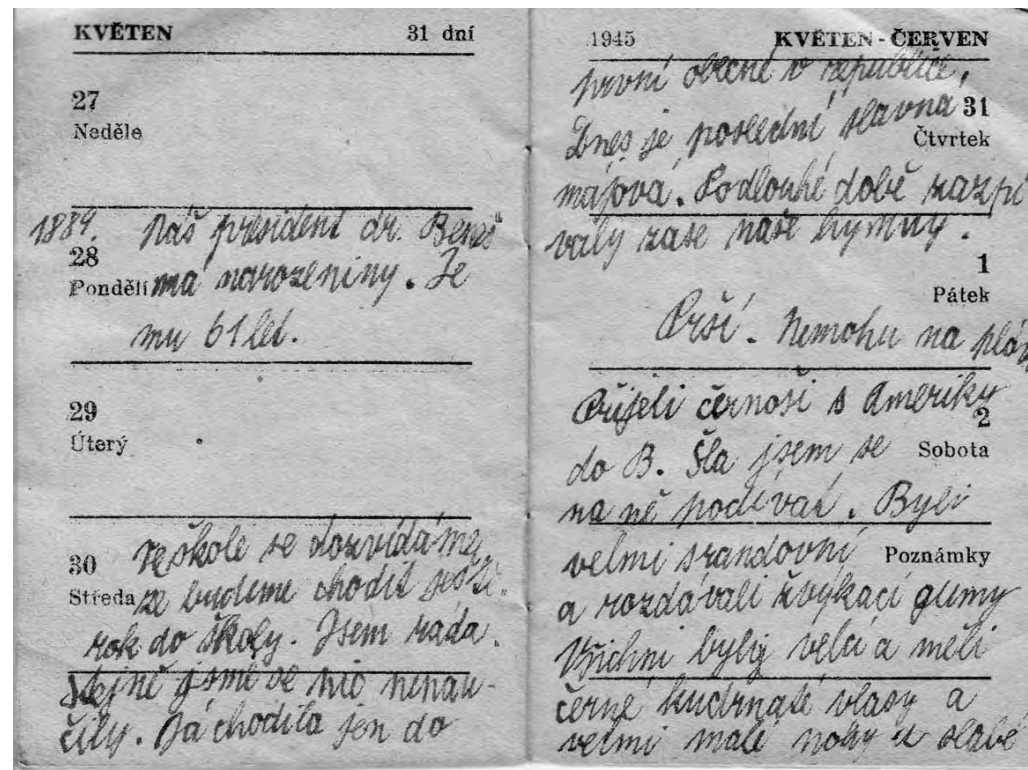 KVĚTEN 31 dní
27
Neděle
1884. Náš president dr. Beneš
28
Pondělí má narozeniny. Je
mu 61 let.
29
Úterý
Ve škole se dozvídáme,
30
Středa že budeme chodit ještě
rok do školy. Jsem ráda.
Stejně jsme se nic nenau-
čily. Já chodila jen do
1945 KVĚTEN - ČERVEN
první obecné v republice.
31
Dnes je poslední slavná
Čtvrtek
májová. Po dlouhé době zazpí
valy zase naše hymny.
1
Pátek
Prší. Nemohu na
Přijeli černoši s Ameriky
2
do B. Šla jsem se Sobota
na ně podívat. Byli
velmi srandovní Poznámky
a rozdávali žvýkací gumy
Všichni byly velcí a měli
černé kudrnaté vlasy a
velmi malé nohy a slabé